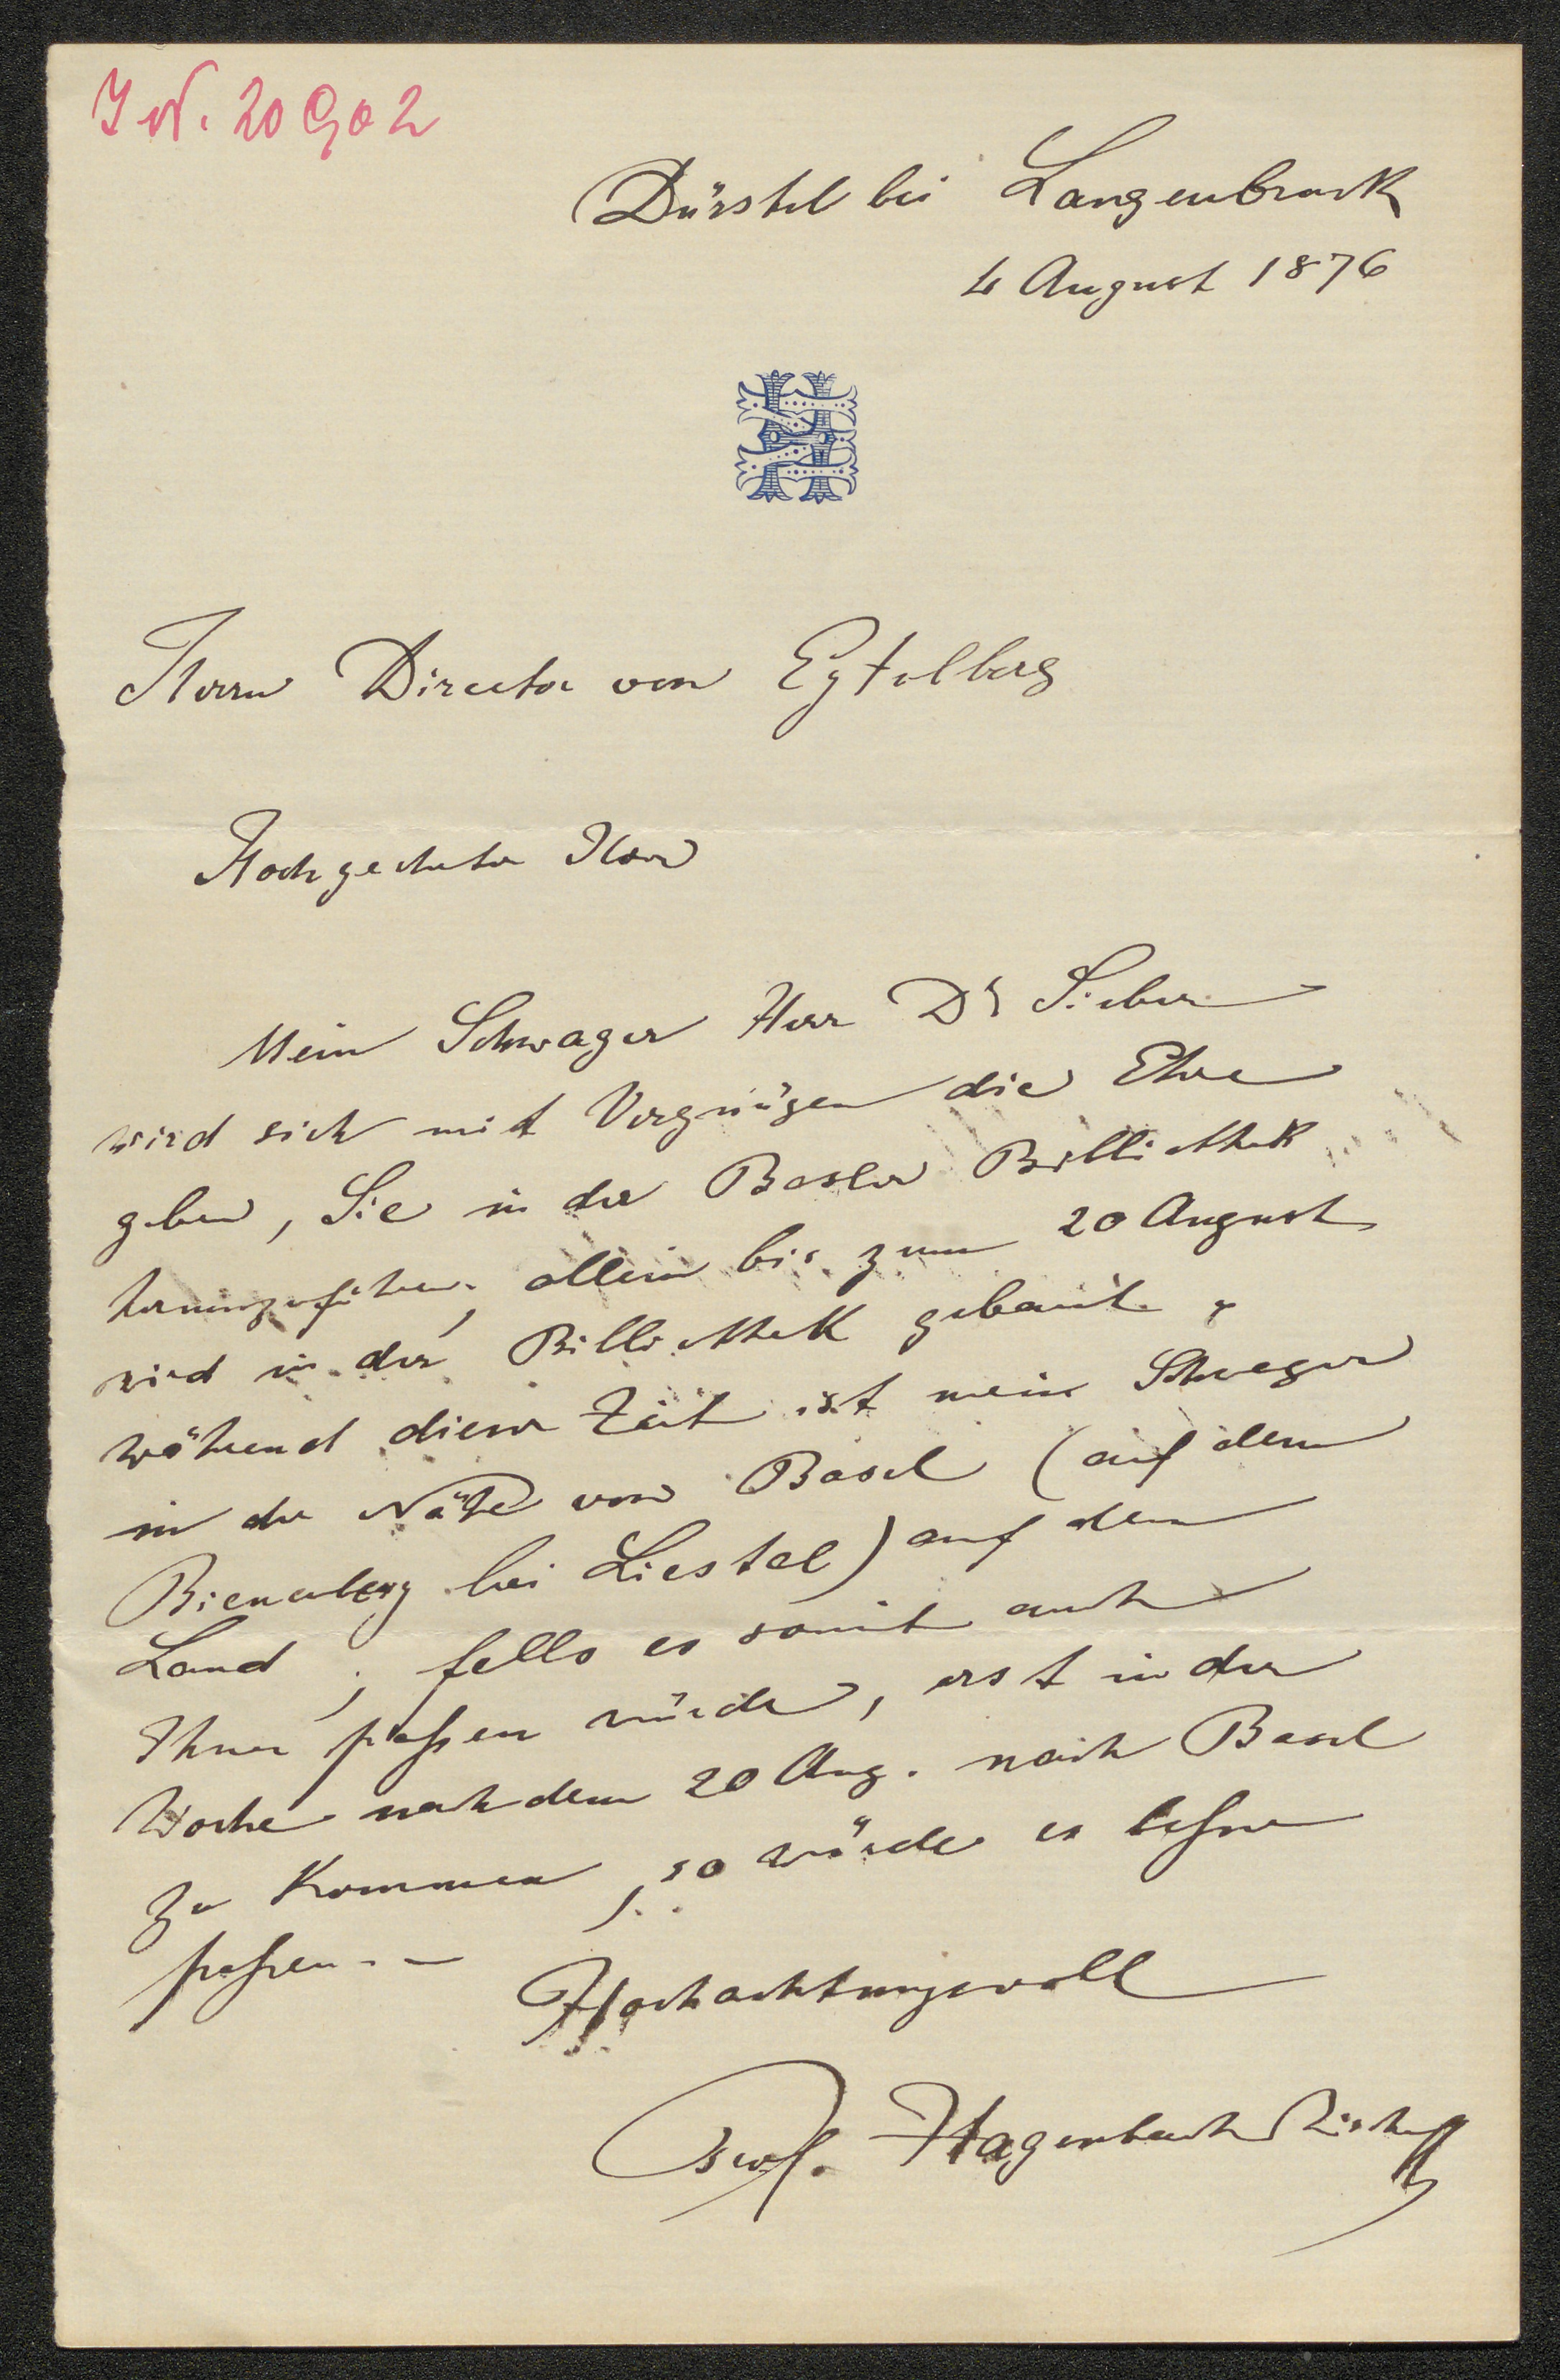 I N. 20902
Dürstel bei Langenbruck
4 August 1876
Herrn Director von Eytelberg
Hochgeehrter Herr
Mein Schwager Herr Dr Sieber
wird sich mit Vergnügen die Ehre
geben, Sie in der Basler Bibliothek
herumzuführen, allein bis zum 20 August
wird in der Bibliothek gebaut u
während dieser Zeit ist mein Schwager
in der Nähe von Basel (auf dem
Bienenberg bei Liestal) auf dem
Land; falls es somit auch
Ihnen paßen würde, erst in der
Woche nach dem 20 Aug. nach Basel
zu kommen, so würde es beßer
paßen. –
Hochachtungsvoll
Prof. Hagenbach Bischoff